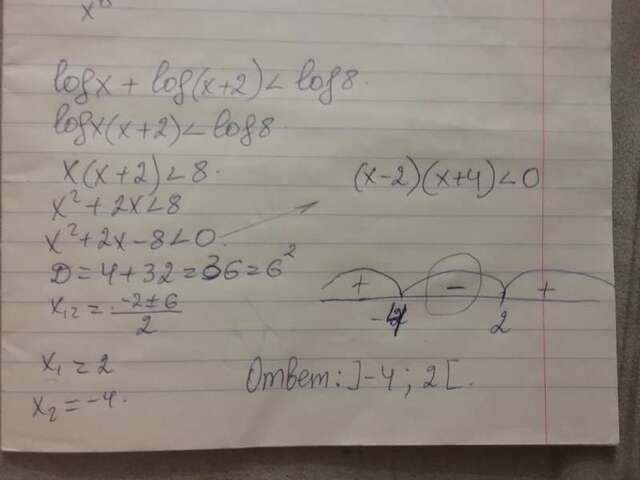 logx + log(x+2) < log8.
logx(x+2) < log8.
x(x+2) < 8.
x² + 2x < 8
x² + 2x - 8 < 0.
(x-2)(x+4) < 0
D = 4 + 32 = 36 = 6²
x₁₂ = (-2 ± 6)/2
x₁ = 2
x₂ = -4.
+ - +
-4 2
Ответ: ]-4; 2[.